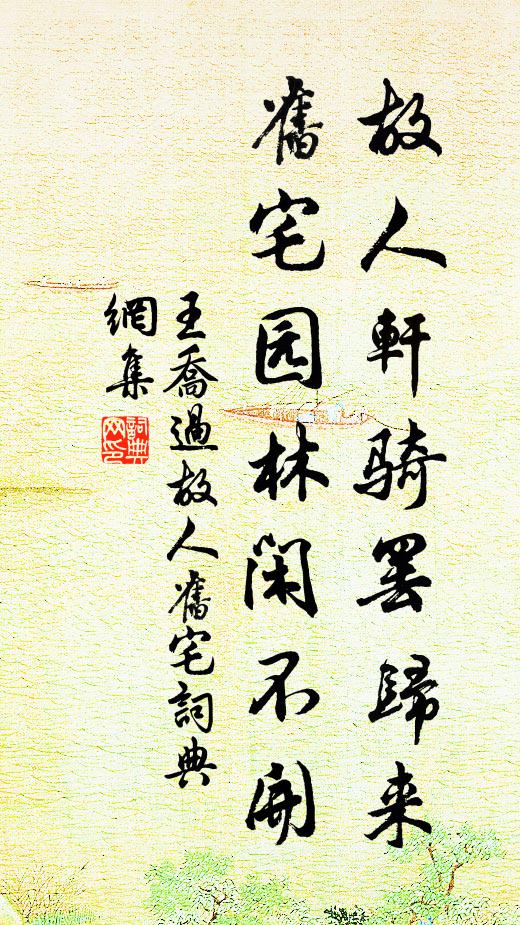 故人軒骑罢歸来
舊宅园林闲不開
王喬過故人舊宅詞典
網集
詞典
网印